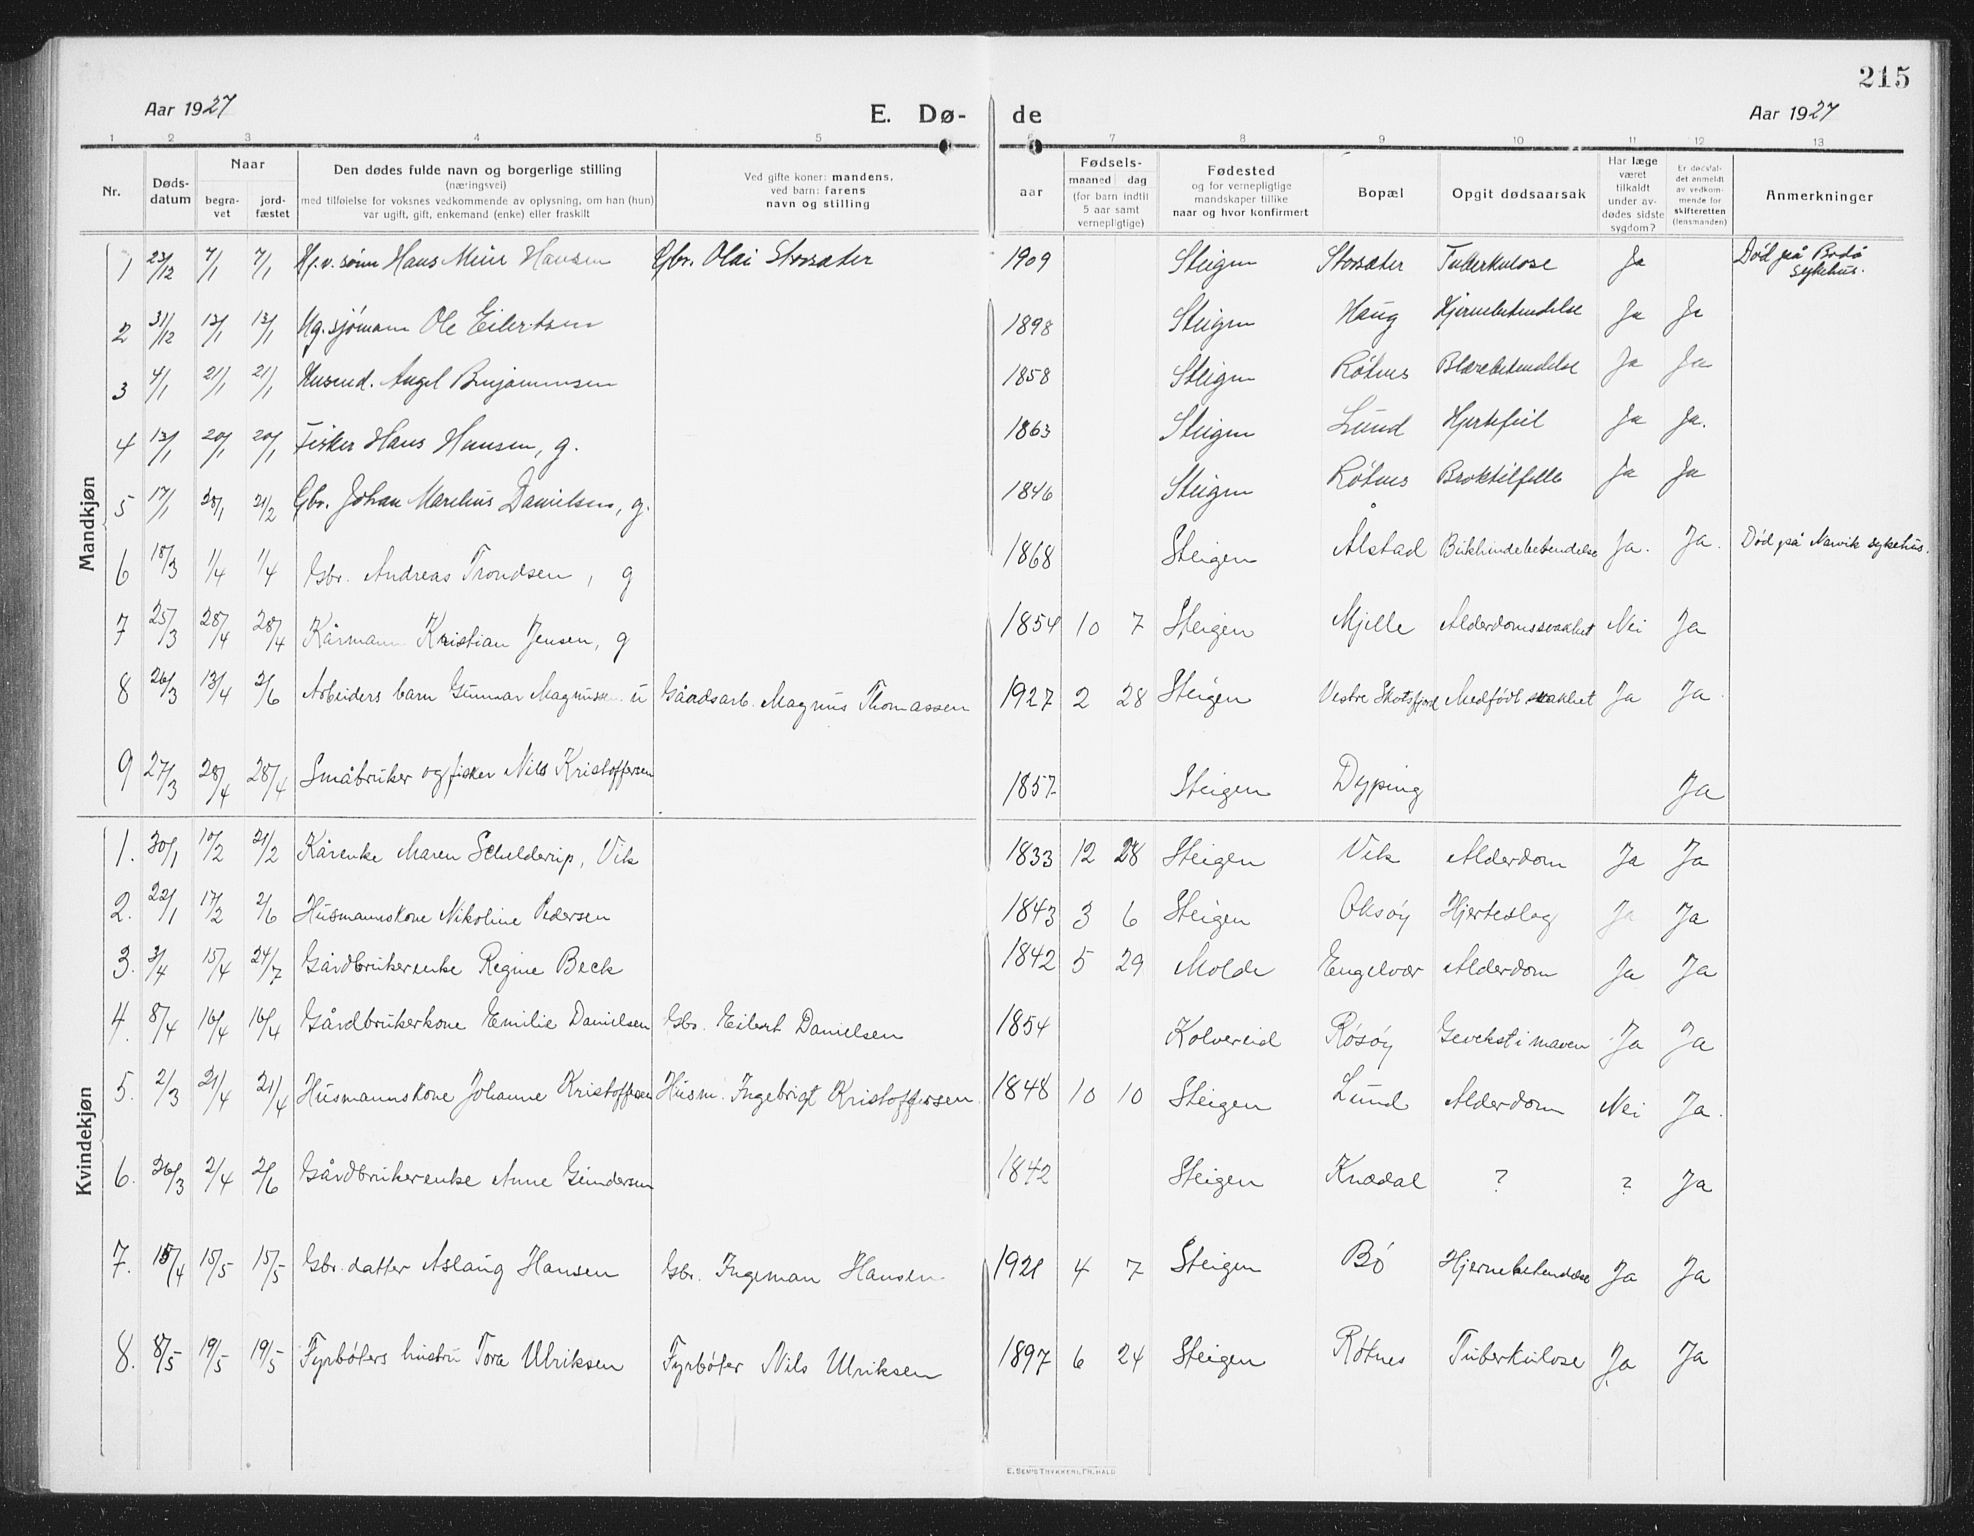 215
Aar 1927
E. Dø-
de
Aar 1927
1 2 3 4 5 6 7 8 9 10 11 12 13
Nr.
Døds-
datum
Naar
begra-
vet
jord-
fæstet
Den dødes fulde navn og borgerlige stilling
(næringsvei)
med tilføielse for voksnes vedkommende av oplysning, om han (hun)
var ugift, gift, enkemand (enke) eller fraskilt
Ved gifte koner: mandens,
ved barn: farens
navn og stilling
Fødsels-
aar
maaned dag
(for barn indtil
5 aar samt
vernepligtige)
Fødested
og for vernepligtige
mandskaper tillike
naar og hvor konfirmert
Bopæl
Opgit dødsaarsak
Har læge
været
tilkaldt
under av-
dødes sidste
sygdom?
Er dødsfal-
det anmeldt
av vedkom-
mende for
skifteretten
(lensmanden)
Anmerkninger
Mandkjøn
1 23/12 7/1 7/1 sønn Hans Meier Hansen Gbr. Olai Storsæter 1909 Steigen Storsæter Tuberkulose Ja Død på Bodø
sykehus.
2 31/12 13/1 13/1 Ug. sjømann Ole Eilertsen 1898 Steigen Haug Hjernebetendelse Ja Ja
3 4/1 21/1 21/1 Angel Benjaminsen 1858 Steigen Røtnes Blærebetendelse Ja Ja
4 13/1 20/1 20/1 Fisker Hans Hansen, g. 1863 Steigen Lund Hjertefeil Ja Ja.
5 17/1 28/1 21/2 Gbr. Johan Marelius Danielsen, g. 1846 Steigen Røtnes Broktilfelle Ja Ja
6 18/3 1/4 1/4 Gbr. Andreas Trondsen, g 1868 Steigen Ålstad Bukhindebetendelse Ja. Ja. Død på Narvik sykehus.
7 25/3 28/4 28/4 Kårmann Kristian Jensen, g 1854 10 7 Steigen Mjelle Alderdomssvakhet Nei Ja
8 26/3 13/4 2/6 Arbeiders barn Gunnar Magnussen u Gårdsarb. Magnus Thomassen 1927 2 28 Steigen Vestre Skotsfjord Medfødt svakhet Ja Ja.
9 27/3 28/4 28/4 Småbruker og fisker Nils Kristoffersen 1857 Steigen Dyping Ja
Kvindekjøn
1. 30/1 10/2 21/2 Kårenke Maren Schelderup, Vik 1833 12 28 Steigen Vik Alderdom Ja Ja
2. 22/1 17/2 2/6 Husmannskone Nikoline Pedersen 1843 3 6 Steigen Oksøy Hjerteslag Ja Ja
3. 3/4 15/4 24/7 Gårdbrukerenke Regine Beck 1842 5 29 Molde Engelvær Alderdom Ja Ja
4. 8/4 16/4 16/4 Gårdbrukerkone Emilie Danielsen Gbr. Eilert Danielsen 1854 Kolvereid Røsøy Gevekst i maven Ja Ja
5. 2/3 21/4 21/4 Husmannskone Johanne Kristoffersen Husm. Ingebrigt Kristoffersen 1848 10 10 Steigen Lund Alderdom Nei Ja.
6. 26/3 2/4 2/6 Gårdbrukerenke Anne Gundersen 1842 Steigen Knædal ? ? Ja
7. 15/4 15/5 15/5 Gbr. datter Aslaug Hansen Gbr. Ingeman Hansen 1921 4 7 Steigen Bø Hjernebetendelse Ja Ja
8. 8/5 19/5 19/5 Fyrbøters hustru Tora Ulriksen Fyrbøter Nils Ulriksen 1897 6 24 Steigen Røtnes Tuberkulose Ja Ja
E. SEM'S TRYKKERI, FR.HALD